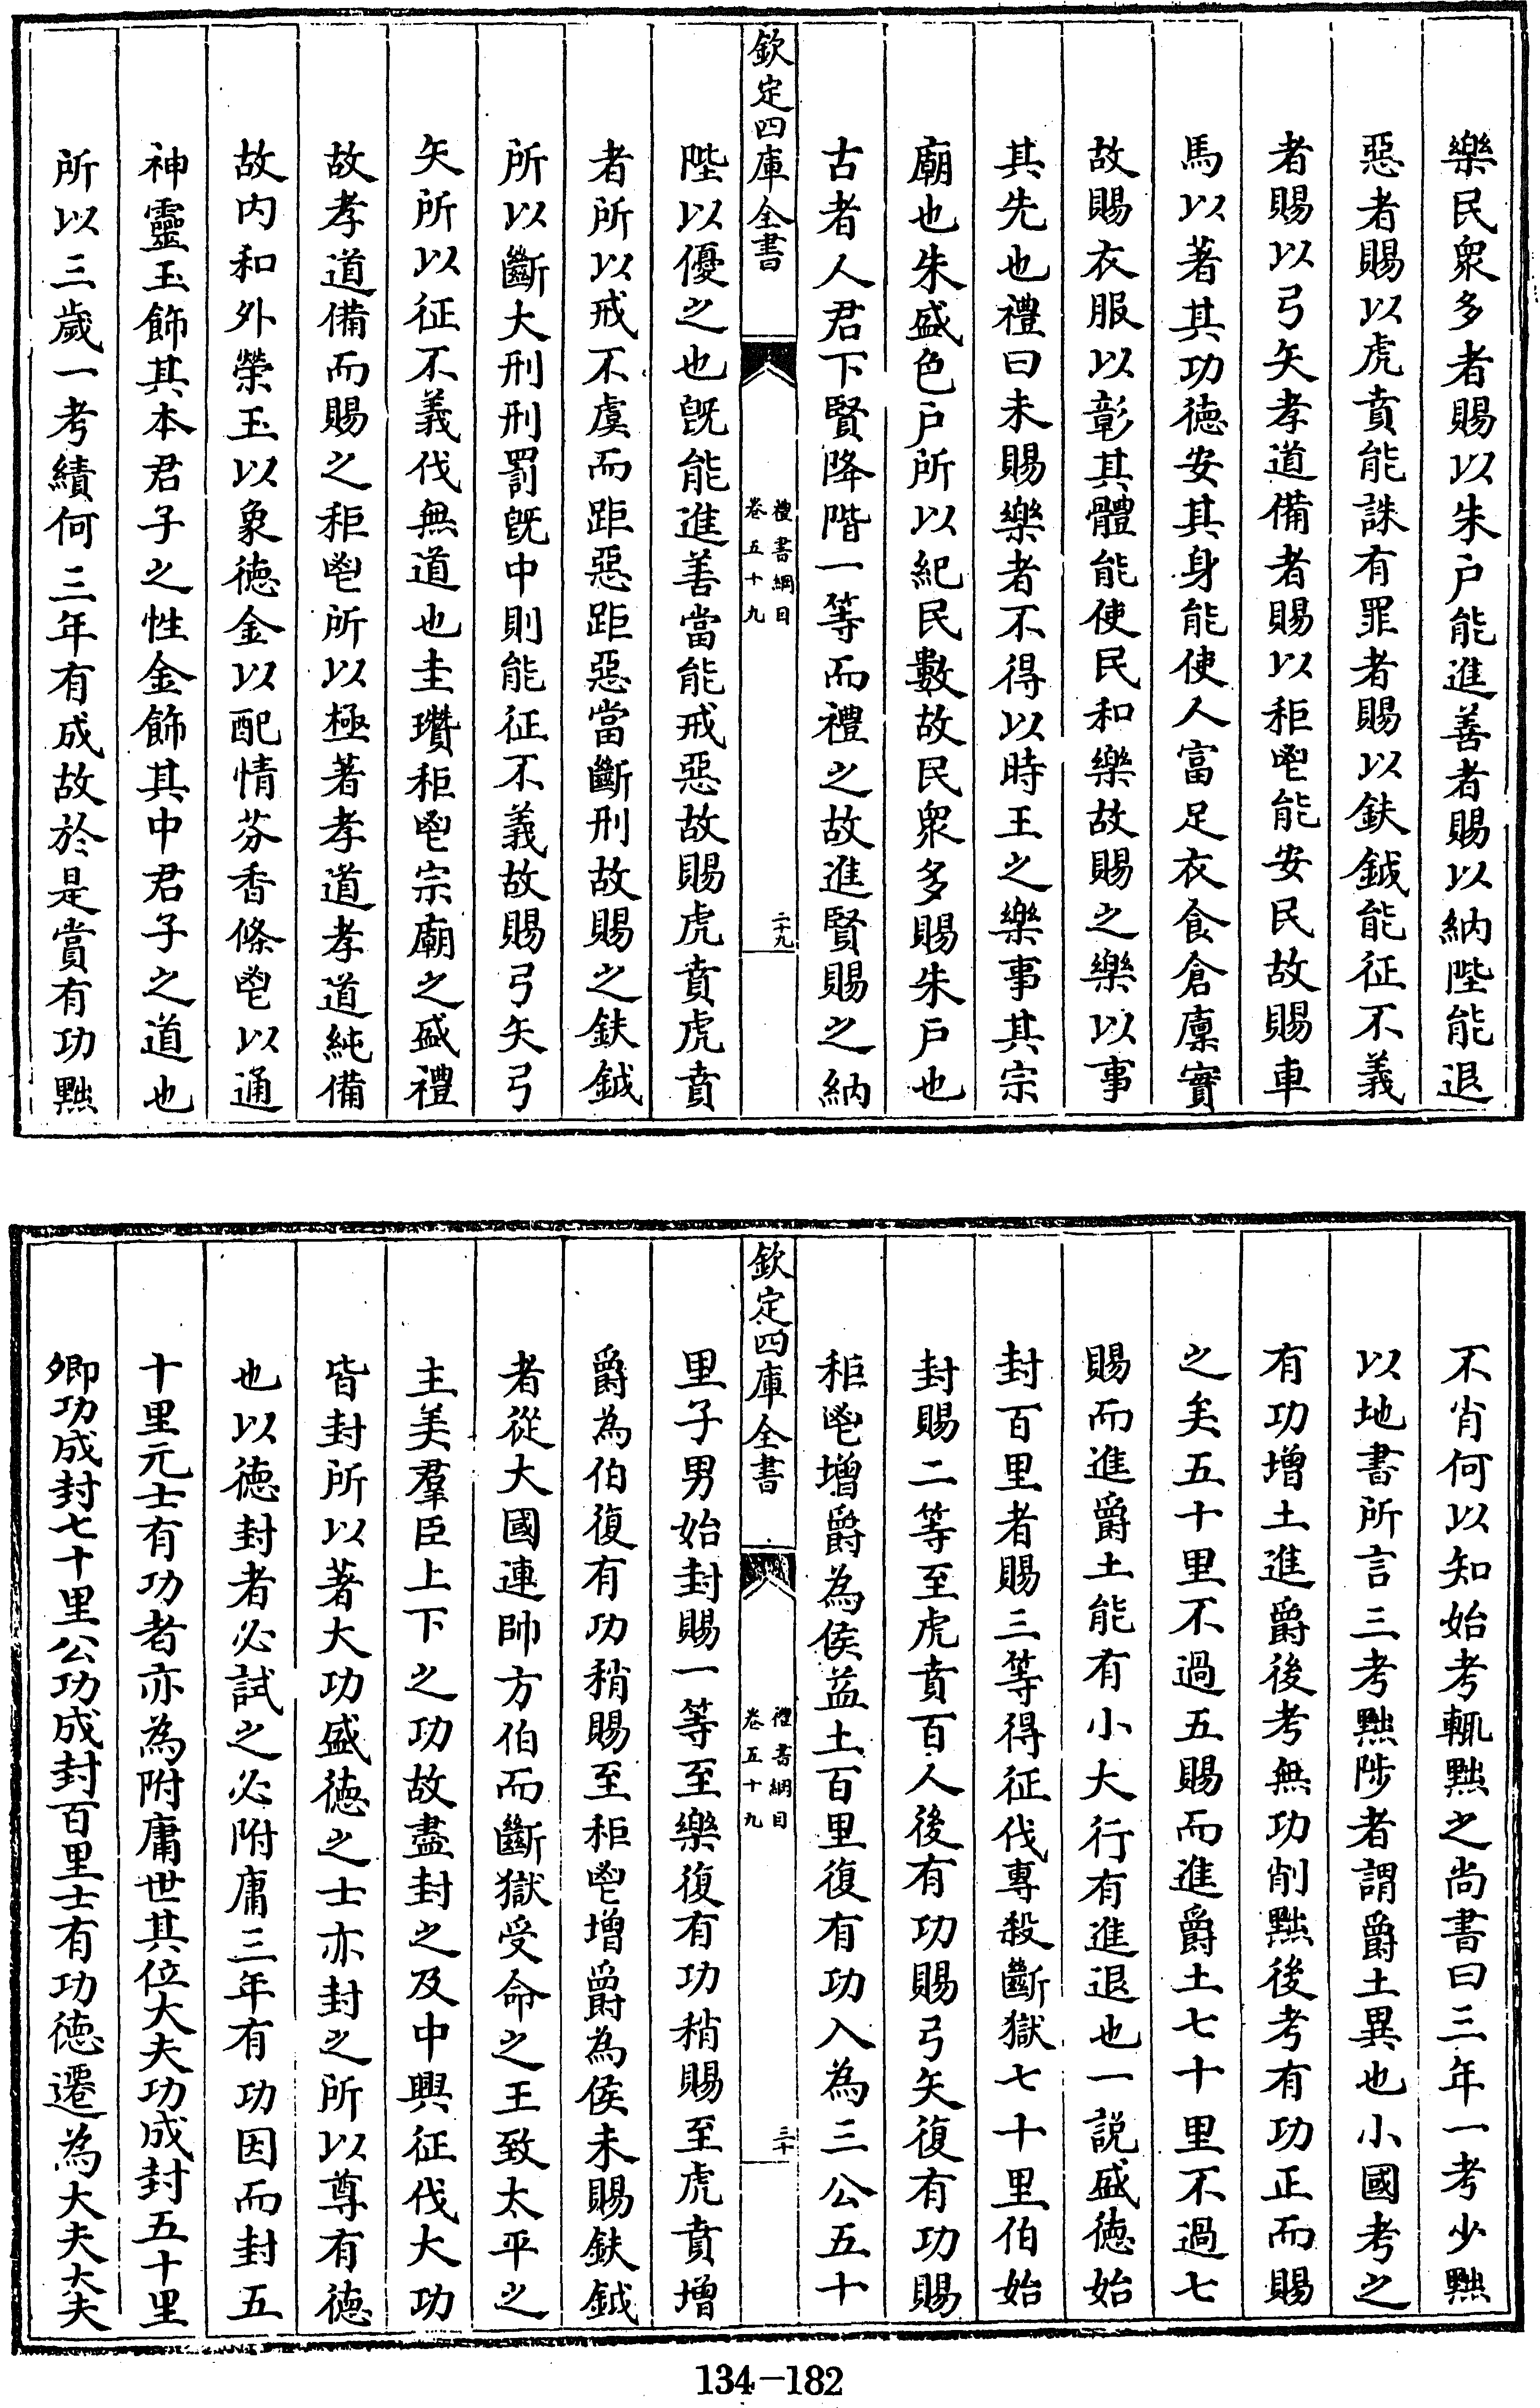 樂民衆多者賜以朱户能進善者賜以納陛能退
惡者賜以虎賁能誅有罪者賜以鈇鉞能征不義
者賜以弓矢孝道備者賜以秬鬯能安民故賜車
馬以著其功徳安其身能使人富足衣食倉廩實
故賜衣服以彰其體能使民和樂故賜之樂以事
其先也禮曰未賜樂者不得以時王之樂事其宗
廟也朱盛色户所以紀民數故民衆多賜朱户也
古者人君下賢降階一等而禮之故進賢賜之納
欽定四庫全書
禮書綱目
卷五十九
二十九
陛以優之也旣能進善當能戒惡故賜虎賁虎賁
者所以戒不虞而距惡距惡當斷刑故賜之鈇鉞
所以斷大刑刑罰旣中則能征不義故賜弓矢弓
矢所以征不義伐無道也圭瓚秬鬯宗廟之盛禮
故孝道備而賜之秬鬯所以極著孝道孝道純備
故内和外榮玉以象徳金以配情芬香條鬯以通
神靈玉飾其本君子之性金飾其中君子之道也
所以三歲一考績何三年有成故於是賞有功黜
不肖何以知始考輒黜之尚書曰三年一考少黜
以地書所言三考黜陟者謂爵土異也小國考之
有功增土進爵後考無功削黜後考有功正而賜
之矣五十里不過五賜而進爵土七十里不過七
賜而進爵土能有小大行有進退也一說盛徳始
封百里者賜三等得征伐專殺斷獄七十里伯始
封賜二等至虎賁百人後有功賜弓矢復有功賜
秬鬯增爵為侯益土百里復有功入為三公五十
欽定四庫全書
禮書綱目
卷五十九
三十
里子男始封賜一等至樂復有功稍賜至虎賁增
爵為伯復有功稍賜至秬鬯增爵為侯未賜鈇鉞
者從大國連帥方伯而斷獄受命之王致太平之
主美羣臣上下之功故盡封之及中興征伐大功
皆封所以著大功盛徳之士亦封之所以尊有徳
也以徳封者必試之必附庸三年有功因而封五
十里元士有功者亦為附庸世其位大夫功成封五十里
卿功成封七十里公功成封百里士有功徳遷為大夫大夫
134-182